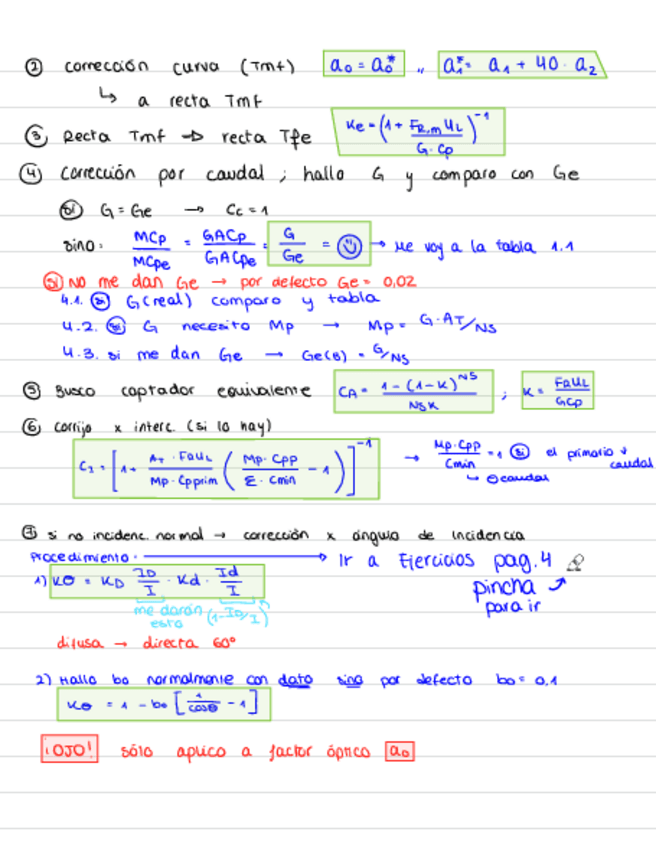 ② corrección curva (Tmf) a₀ = a₀* ,, a₁* = a₁ + 40 · a₂
↳ a recta Tmf
③ Recta Tmf ⇒ recta Tfe Ke = (1 + FR,m UL / G · Cp)⁻¹
④ Corrección por caudal ; hallo G y comparo con Ge
Si G = Ge → Cc = 1
sino: MCp/MCpe = GACp/GACpe = G/Ge = ☺ → Me voy a la tabla 1.1
Si NO me dan Ge → por defecto Ge = 0,02
4.1. Si G (real) comparo y tabla
4.2. Si G necesito Mp → Mp = G·AT/NS
4.3. si me dan Ge → Ge(s) = G/NS
⑤ Busco captador equivalente CA = 1 - (1-K)^NS / NS K ; K = FRUL / GCp
⑥ corrijo x interc. (si lo hay)
C₂ = [1 + AT · FRUL / Mp · Cpprim (Mp · Cpp / Ɛ · Cmin - 1)]⁻¹ → Mp · Cpp / Cmin = 1 Si el primario ↓ caudal
↳ ⊖caudal
⑦ si no incidenc. normal → corrección x ángulo de incidencia
Procedimiento. → Ir a Ejercicios pag. 4
1) Kθ = KD ID/I · Kd · Id/I pincha
me darán esto (1-ID/I) para ir
difusa → directa 60°
2) Hallo bo normalmente con dato sino por defecto bo = 0,1
Kθ = 1 - bo [1/cosθ - 1]
¡OJO! sólo aplico a factor óptico a₀